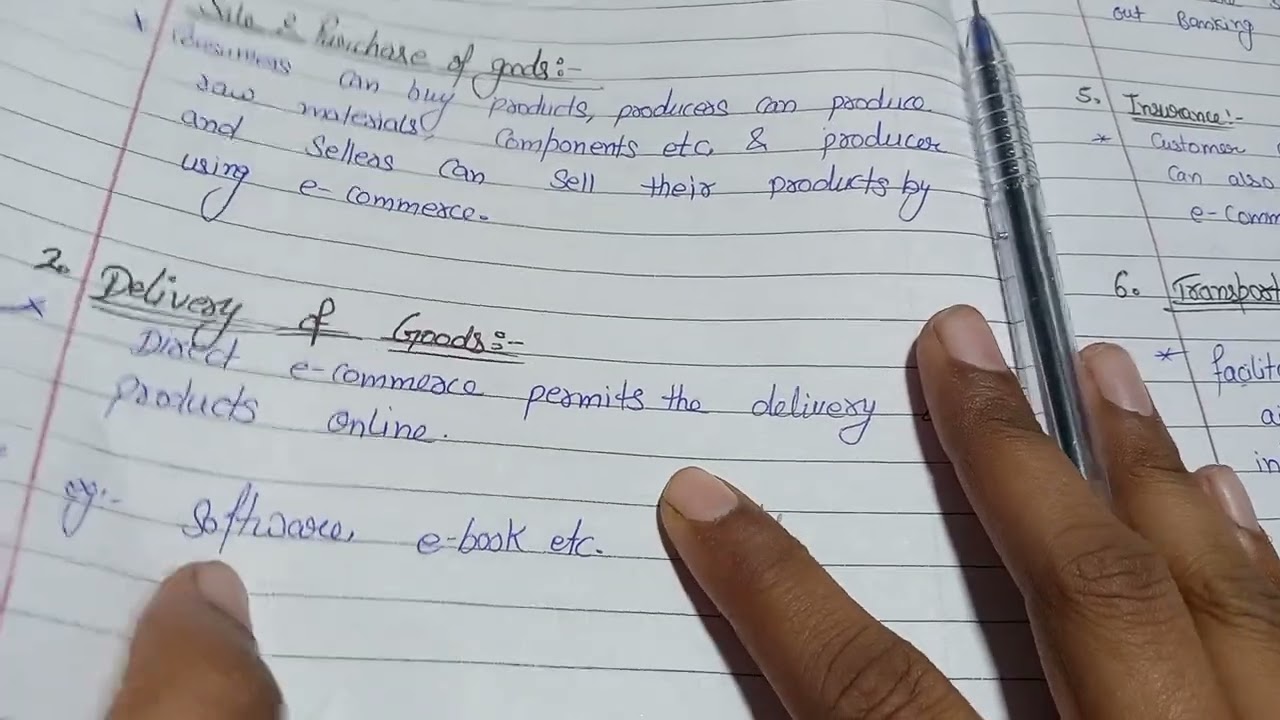 Sale & Purchase of goods:-
can buy products, producers can produce
raw materials, components etc, & producer
and Sellers can sell their products by
using e-commerce.
2. Delivery of Goods:-
* Direct e-commerce permits the delivery
products online.
eg:- Software, e-book etc.
out Banking
5. Insurance:-
* Customer
can also
e-comm
6. Transport
* facilit
in